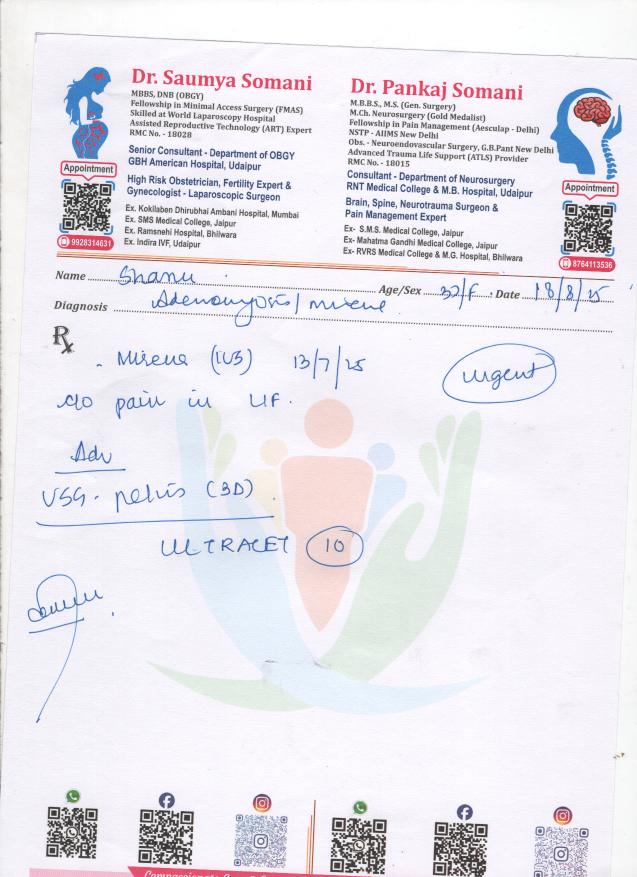 Dr. Saumya Somani
MBBS, DNB (OBGY)
Fellowship in Minimal Access Surgery (FMAS)
Skilled at World Laparoscopy Hospital
Assisted Reproductive Technology (ART) Expert
RMC No. - 18028
Senior Consultant - Department of OBGY
GBH American Hospital, Udaipur
High Risk Obstetrician, Fertility Expert &
Gynecologist - Laparoscopic Surgeon
Ex. Kokilaben Dhirubhai Ambani Hospital, Mumbai
Ex. SMS Medical College, Jaipur
Ex. Ramsnehi Hospital, Bhilwara
Ex. Indira IVF, Udaipur
Appointment
9928314631
Dr. Pankaj Somani
M.B.B.S., M.S. (Gen. Surgery)
M.Ch. Neurosurgery (Gold Medalist)
Fellowship in Pain Management (Aesculap - Delhi)
NSTP - AIIMS New Delhi
Obs. - Neuroendovascular Surgery, G.B.Pant New Delhi
Advanced Trauma Life Support (ATLS) Provider
RMC No. - 18015
Consultant - Department of Neurosurgery
RNT Medical College & M.B. Hospital, Udaipur
Brain, Spine, Neurotrauma Surgeon &
Pain Management Expert
Ex- S.M.S. Medical College, Jaipur
Ex- Mahatma Gandhi Medical College, Jaipur
Ex- RVRS Medical College & M.G. Hospital, Bhilwara
Appointment
8764113536
Name Shanu Age/Sex 32/F Date 18/8/25
Diagnosis Adenomyosis / Mirena
Rx
- Mirena (IUS) 13/7/25 urgent
c/o pain in LIF.
Adv
USG - pelvis (3D)
ULTRACET 10